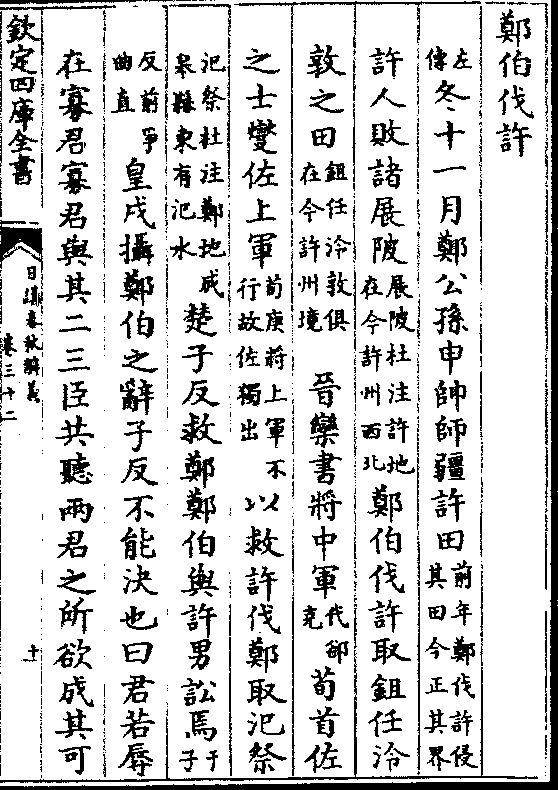 鄭伯伐許
左傳冬十一月鄭公孫申帥師疆許田前年鄭伐許侵其田今正其界
許人敗諸展陂展陂杜注許地在今許州西北鄭伯伐許取鉏任泠
敦之田鉏任泠敦俱在今許州境晉欒書將中軍代郤克荀首佐
之士燮佐上軍荀庚將上軍不行故佐獨出以救許伐鄭取氾祭
氾祭杜注鄭地成皋縣東有氾水楚子反救鄭鄭伯與許男訟焉于子
反前爭曲直皇戌攝鄭伯之辭子反不能決也曰君若辱
在寡君寡君與其二三臣共聽兩君之所欲成其可
欽定四庫全書
日講春秋解義
卷三十二
十一